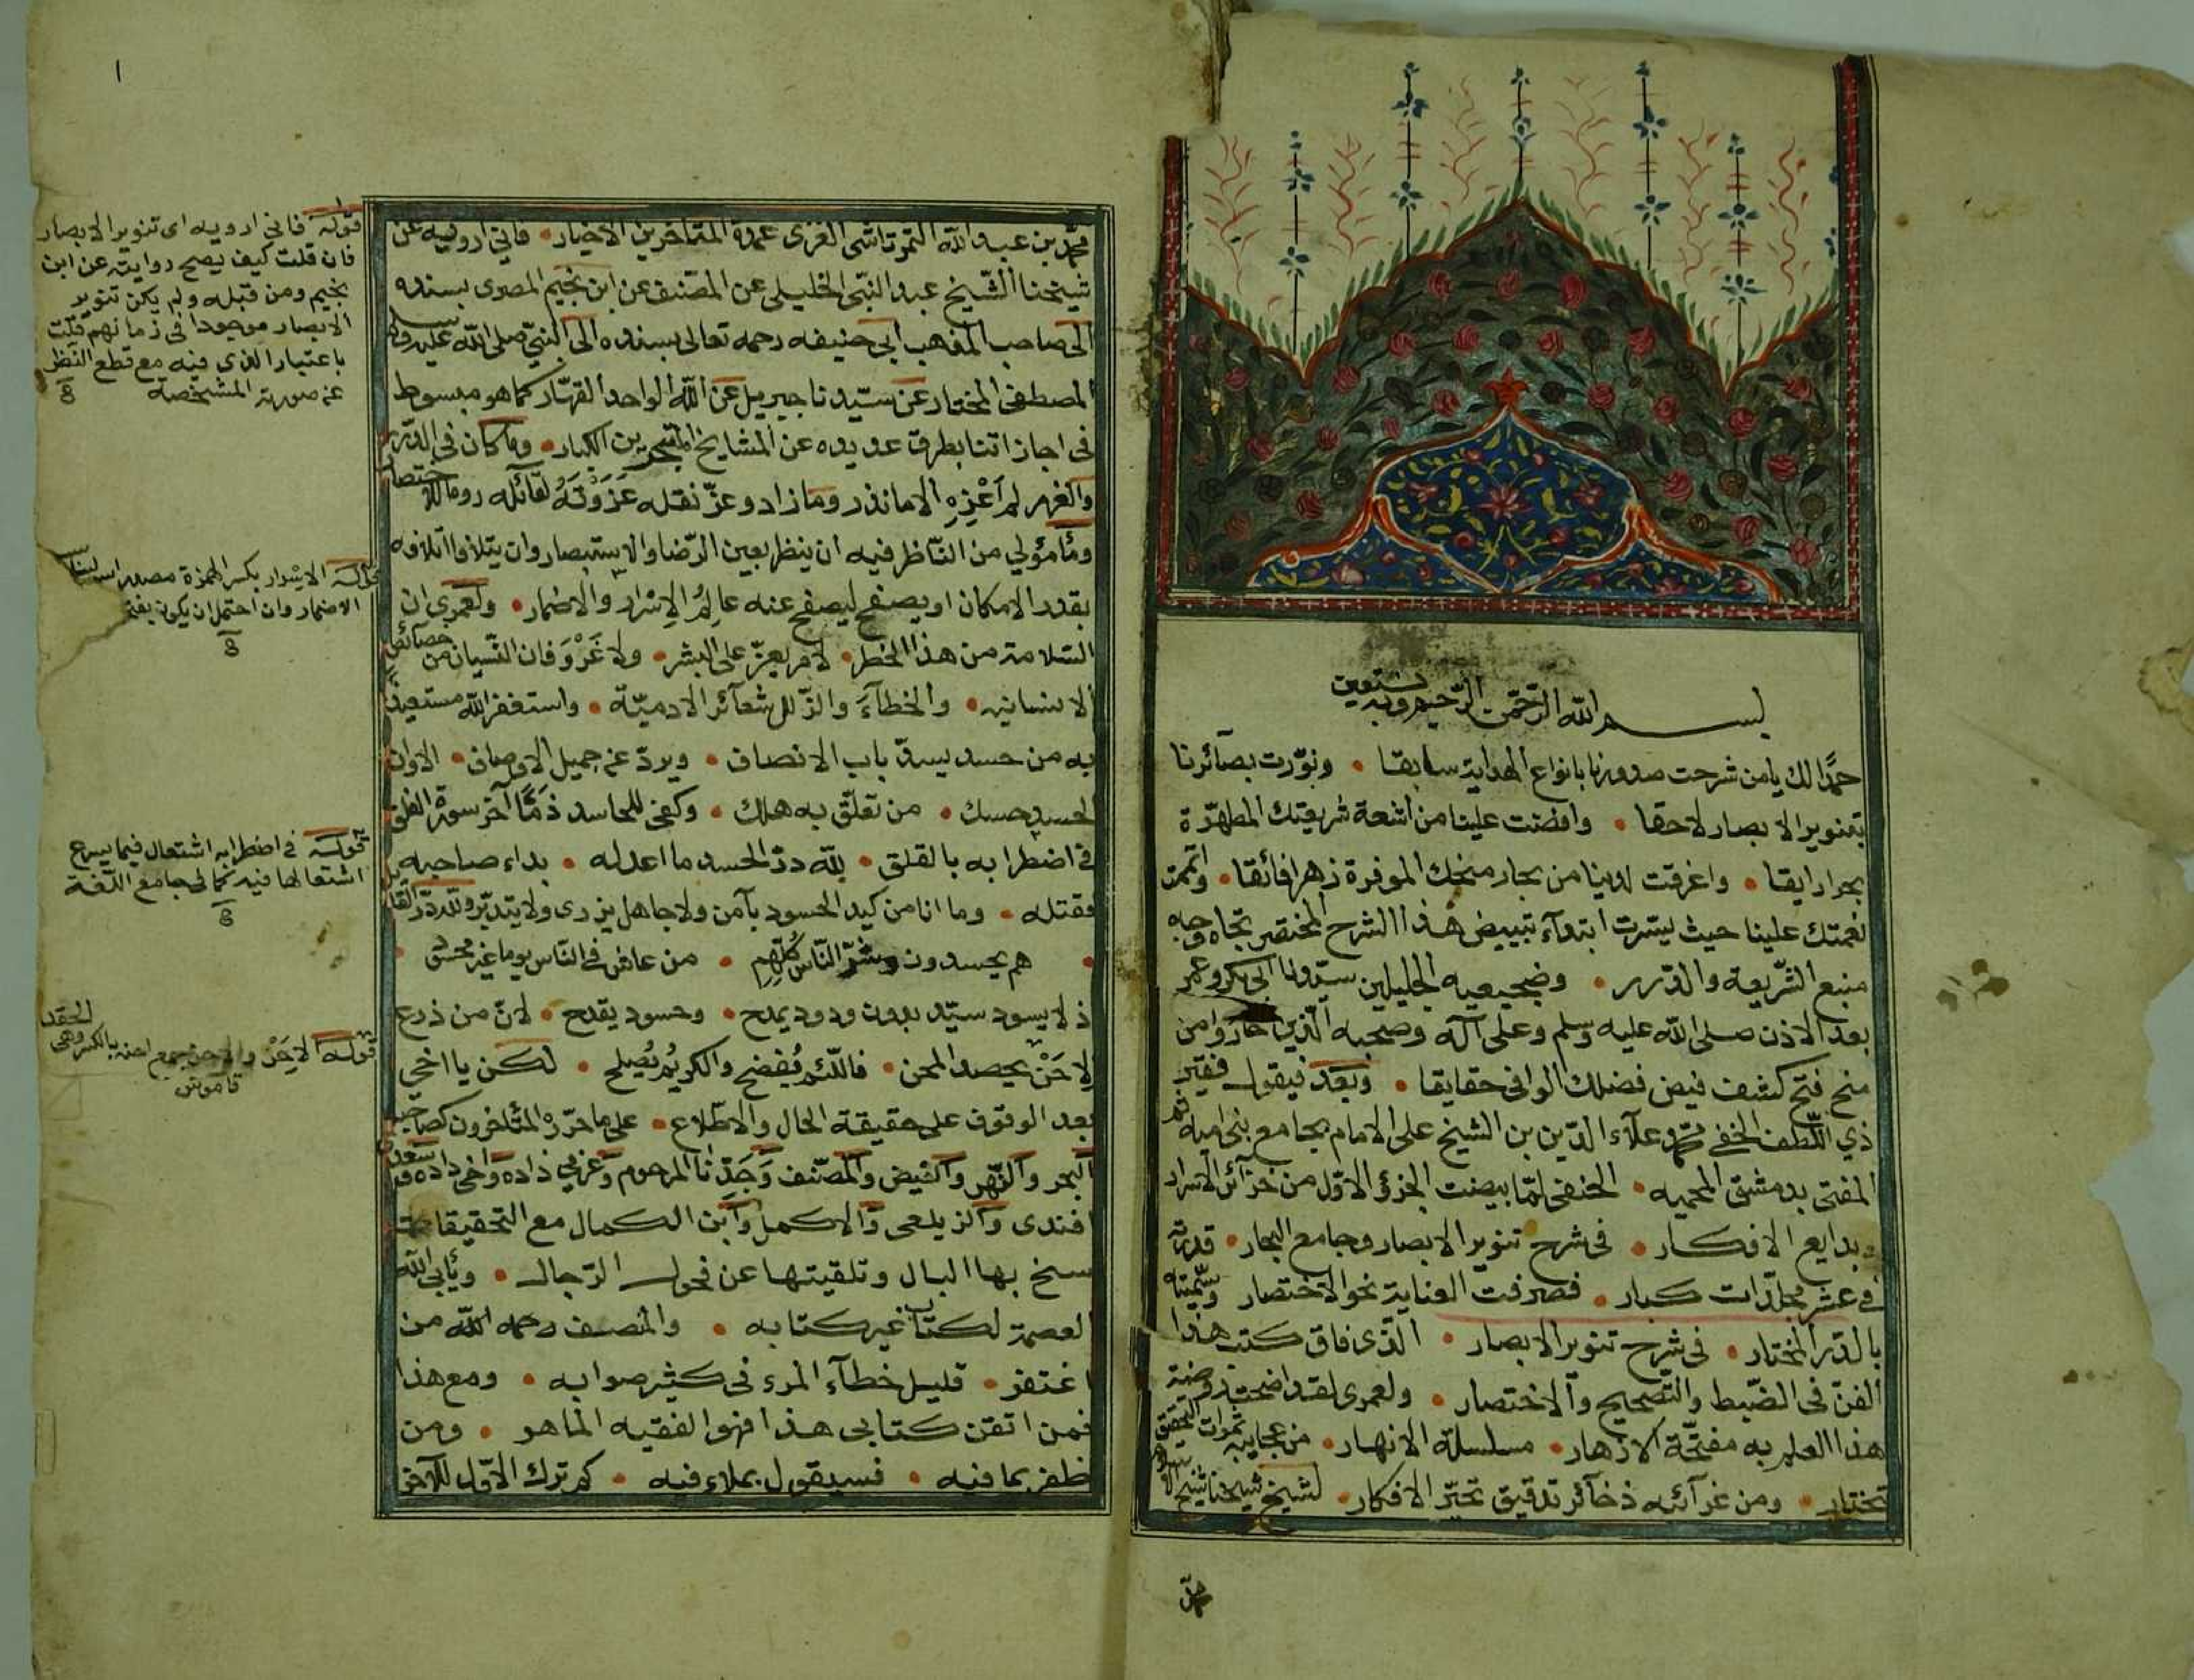 بسم الله الرحمن الرحيم وبه نستعين
حمدا لك يا من شرحت صدورنا بانواع الهداية سابقا • ونوّرت بصآئرنا
بتنوير الابصار لاحقا • وافضت علينا من اشعة شريعتك المطهّرة
بحرا رايقا • واغرقت لدينا من بحار منحك الموفرة نهرا فائقا • واتممت
نعمتك علينا حيث يسّرت ابتدآء تبييض هذا الشرح المختصر تجاه وجه
منبع الشّريعة والدّرر • وضجيعيه الجليلين سيّدنا ابى بكر وعمر
بعد الاذن صلى الله عليه وسلم وعلى آله وصحبه الّذين حازوا من
منح فتح كشف فيض فضلك الوافى حقايقا • وبعد فيقول فقير
ذي اللّطف الخفي محمد علآء الدّين بن الشيخ على الامام بجامع بنى اميه ثم
المفتى بدمشق المحميه • الحنفى لمّا بيضت الجزؤ الاوّل من خزآئن الاسرار
وبدايع الافكار • فى شرح تنوير الابصار وجامع البحار • قدرته
في عشر مجلّدات كبار • فصرفت العناية نحو الاختصار وسمّيته
بالدّر المختار • فى شرح تنوير الابصار • الّذى فاق كتب هذا
الفنّ فى الضّبط والتّصحيح والاختصار • ولعمرى لقد اضحت روضة
هذا العلم به مفتّحة الازهار • مسلسلة الانهار • من عجايبه ثمرات التحقيق
تختار • ومن غرآئبه ذخآئر تدقيق تحيّر الافكار • لشيخ شيخنا شيخ الاسلام
محمّد
١
محمّد بن عبد الله التمرتاشى الغزى عمدة المتاخرين الاخيار • فانى ارويه عن
شيخنا الشّيخ عبد النّبى الخليلى عن المصنف عن ابن نجيم المصرى بسنده
الى صاحب المذهب ابى حنيفه رحمه تعالى بسنده الى النبيّ صلى الله عليه وسلم
المصطفى المختار عن سيّدنا جبريل عن الله الواحد القهّار كما هو مبسوط
فى اجازاتنا بطرق عديده عن المشايخ المتبحرين الكبار • وما كان فى الدّرر
والغرر لم اَعْزِهِ الا ما نذر وما زاد وعزّ نقله عَزَوْتَهُ لقآئله روما للاختصار
ومأمؤلي من النّاظر فيه ان ينظر بعين الرّضا والاستبصار وان يتلافا اتلافه
بقدر الامكان او يصفح ليصفح عنه عالِمُ الاِسْرار والاضمار • ولعمرى ان
السّلامة من هذا الخطر • لامر يعزّ على البشر • ولا غَرْوَ فان النّسيان من خصآئص
الانسانيه • والخطآءَ والزّلل شعآئر الادميّة • واستغفر الله مستعيذا
به من حسد يسدّ باب الانصاف • ويردّ عن جميل الاوصاف • الا وان
الحسد حسك • من تعلّق به هلك • وكفى للحاسد ذمًّا آخر سورة الفلق
فى اضطرابه بالقلق • لله درّ الحسد ما اعدله • بداء صاحبه
فقتله • وما انا من كيد الحسود بآمن ولا جاهل يزرى ولا يتدبّر ولله درّ القا
هم يحسدون وشرّ النّاس كُلِّهِم • من عاش فى النّاس يوما غير محسود
اذ لا يسود سيّد بدون ودود يمدح • وحسود يقدح • لانّ من ذرع
الاِحَنْ يحصد المحن • فاللّئم يُفضح والكريُم يُصلح • لكن يا اخى
بعد الوقوف على حقيقة الحال والاطّلاع • على ما حرّره المتأخرون كصاحب
البحر والنّهر والفيض والمصّنف وَجَدِّنا المرحوم وعزمى زاده واخى زاده وسعدى
افندى والزيلعى والاكمل وابن الكمال مع التحقيقات
سنح بها البال وتلقيتها عن فحول الرّجال • ويأبى الله
العصمة لكتاب غير كتابه • والمنصف رحمه الله من
اغتفر • قليل خطآء المرء فى كثير صوابه • ومع هذا
فمن اتقن كتابى هذا فهو الفقيه الماهر • ومن
ظفر بما فيه • فسيقول بملاء فيه • كم ترك الاوّل للآخر
قوله فانى ارويه اى تنوير الابصار
فان قلت كيف يصح روايته عن ابن
نجيم ومن قبله ولم يكن تنوير
الابصار موجودا فى زمانهم قلت
باعتبار الذى فيه مع قطع النّظر
عن صورته المشخصة
قوله الاِسْرار بكسر الهمزة مصدر
الاضمار وان احتمل ان يكون بفتح
قوله فى اضطرابه اشتعال فيما يسرع
اشتعالها فيه كما فى جامع اللّغة
قوله الاِحَنْ والاحن جمع احنه بالكسر وهى الحقد
قاموس